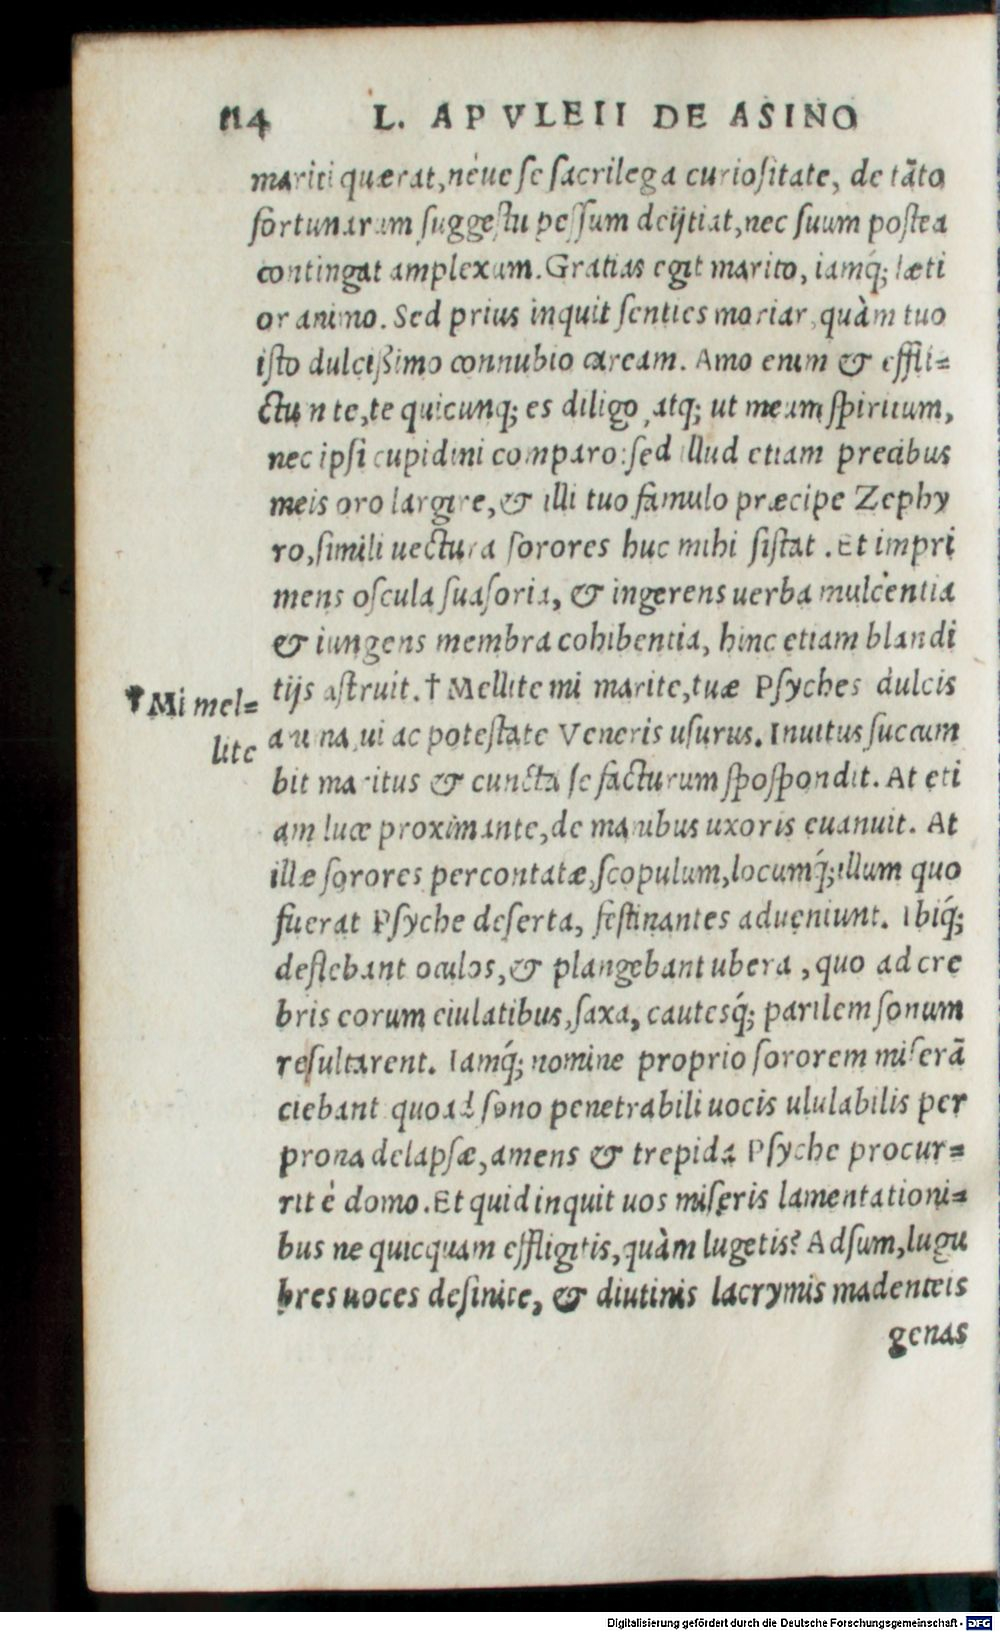 114 L. APVLEII DE ASINO
mariti quærat, néue se sacrilega curiositate, de tāto
fortunarum suggestu pessum deijtiat, nec suum postea
contingat amplexum. Gratias egit marito, iamq́; læti
or animo. Sed prius inquit senties moriar, quàm tuo
isto dulcißimo connubio caream. Amo enim & effli=
ctim te, te quicunq; es diligo, atq; ut meum spiritum,
nec ipsi cupidini comparo: sed illud etiam precibus
meis oro largire, & illi tuo famulo præcipe Zephy
ro, simili uectura sorores huc mihi sistat. Et impri
mens oscula suasoria, & ingerens uerba mulcentia
& iungens membra cohibentia, hinc etiam blandi
tijs astruit. † Mellite mi marite, tuæ Psyches dulcis
† Mi mel=
lite
a nima, ui ac potestate Veneris usurus. Inuitus succum
bit maritus & cuncta se facturum spospondit. At eti
am luce proximante, de manibus uxoris euanuit. At
illæ sorores percontatæ, scopulum, locumq́; illum quo
fuerat Psyche deserta, festinantes adueniunt. Ibiq́;
deflebant oculos, & plangebant ubera, quo ad cre
bris eorum eiulatibus, saxa, cautesq́; parilem sonum
resultarent. Iamq́; nomine proprio sororem miserā
ciebant quoad sono penetrabili uocis ululabilis per
prona delapsæ, amens & trepida Psyche procur=
rit è domo. Et quid inquit uos miseris lamentationi=
bus ne quicquam effligitis, quàm lugetis? Adsum, lugu
bres uoces desinite, & diutinis lacrymis madenteis
genas
Digitalisierung gefördert durch die Deutsche Forschungsgemeinschaft - DFG